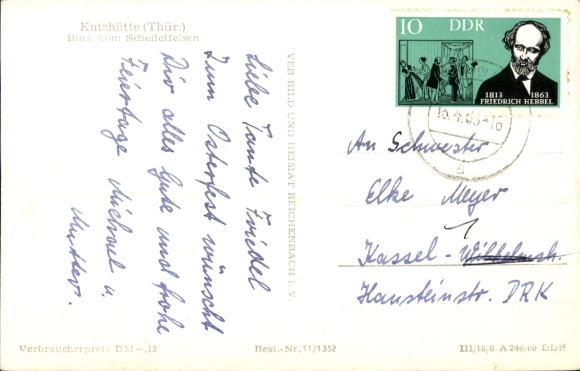 Katzhütte (Thür.)
Blick vom Scheffelfelsen
Liebe Tante Friedel
Zum Osterfest wünscht
Dir alles Gute und frohe
Feiertage Michael u.
Mutter.
VEB BILD UND HEIMAT REICHENBACH i. V.
10 DDR
1813 1863
FRIEDRICH HEBBEL
An Schwester
Elke Meyer
Kassel-Wilhelmsh.
Hansteinstr. DRK
Verbraucherpreis DM -,15
Best.-Nr. 11/1352
III/18/6 A 246/60 DDR